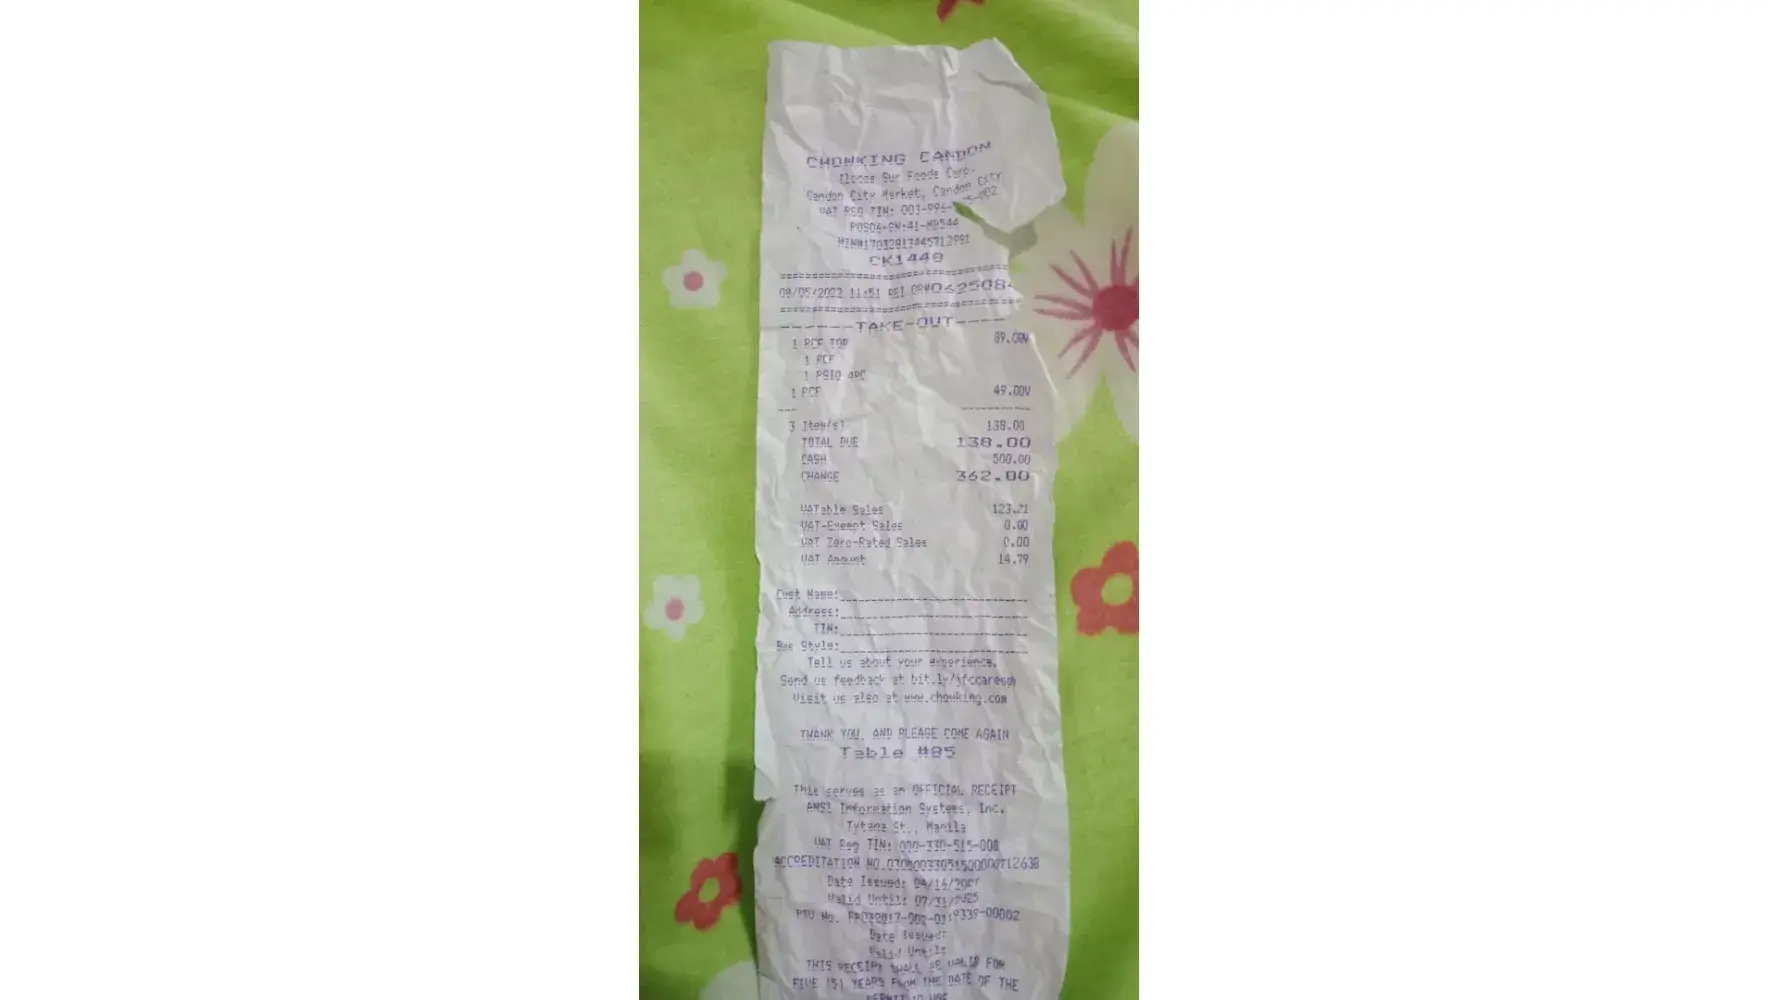 CHOWKING CANDON
Ilocos Sur Foods Corp.
Candon City Market, Candon City
VAT REG TIN: 003-996- 5-002
MIN#17032817445712981
CK1448
08/05/2022 11:51 REI OR#062508
------TAKE-OUT-----
1 RCF TOP 89.00V
1 RCF
1 PSIO 4PC
1 RCF 49.00V
3 Item(s) 138.00
TOTAL DUE 138.00
CASH 500.00
CHANGE 362.00
VATable Sales 123.21
VAT-Exempt Sales 0.00
VAT Zero-Rated Sales 0.00
VAT Amount 14.79
Cust Name:
Address:
TIN:
Bus Style:
Tell us about your experience.
Send us feedback at bit.ly/jfccaresph
Visit us also at www.chowking.com
THANK YOU, AND PLEASE COME AGAIN
Table #85
This serves as an OFFICIAL RECEIPT
ANSI Information Systems, Inc.
Tytana St., Manila
VAT Reg TIN: 000-330-515-000
ACCREDITATION NO.
Date Issued: 04/14/
Valid Until: 07/31/2025
PTU No.
Date Issued:
Valid Until:
THIS RECEIPT SHALL BE VALID FOR
FIVE (5) YEARS FROM THE DATE OF THE
PERMIT TO USE